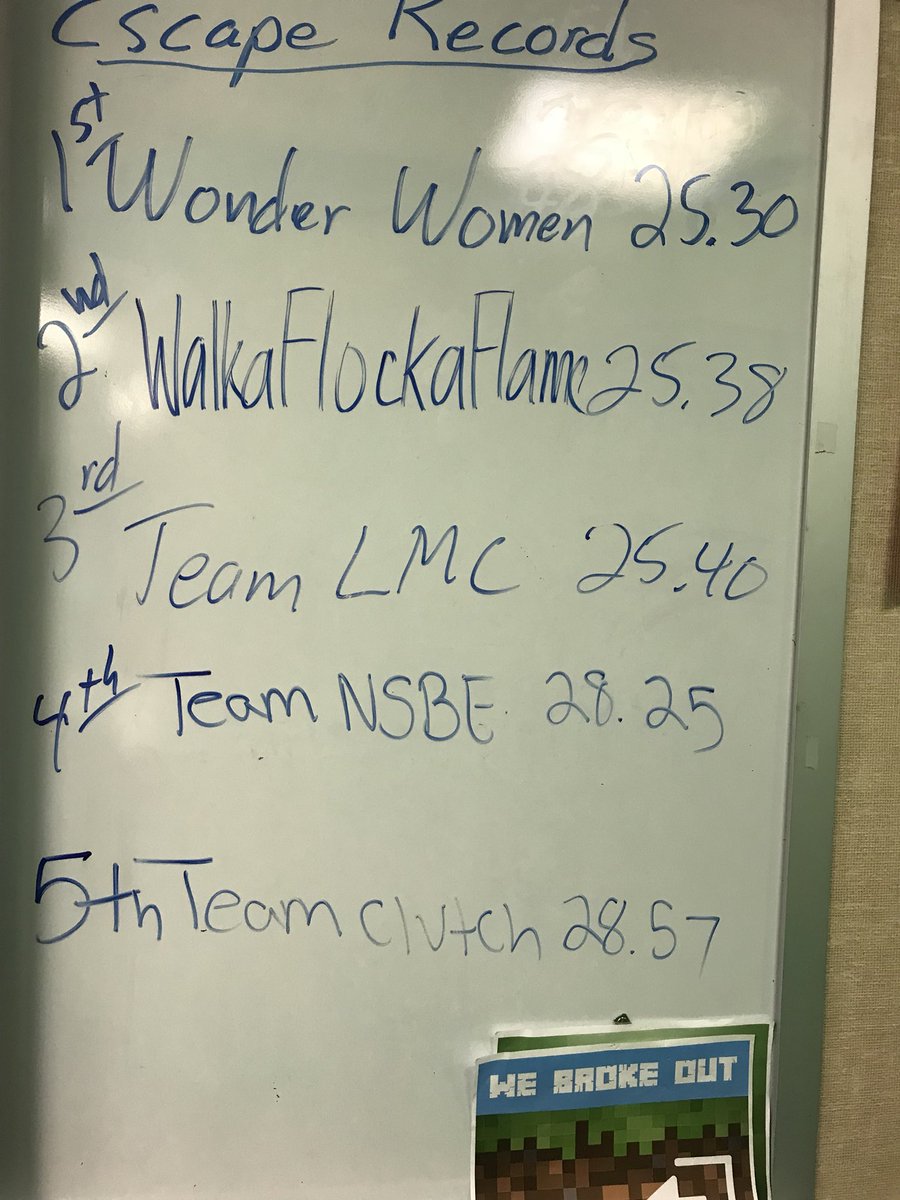 Escape Records
1st Wonder Women 25.30
2nd WalkaFlockaFlame 25.38
3rd Team LMC 25.40
4th Team NSBE 28.25
5th Team Clutch 28.57
WE BROKE OUT